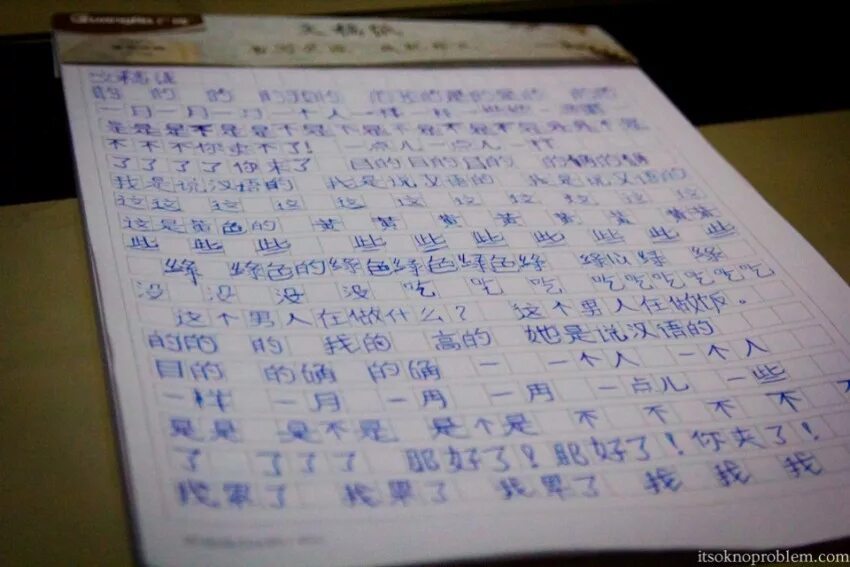 文稿纸
的 的 的 的 的
一月一月一月 一个人一样一样一些些
是是是不是是不是不是不是不是不是是是不是
不不不你去不了！ 一点儿一点儿 一样
了了了了你来了 目的目的目的 的确的确
我是说汉语的 我是说汉语的 我是说汉语的
这这 这 这 这 这 这 这 这 这 这
这是黄色的 黄 黄 黄 黄 黄 黄 黄黄
些 些 些 些 些 些 些 些 些 些
绿 绿色的绿色绿色绿色绿 绿 绿 绿
没 没 没 没 吃 吃 吃 吃吃吃吃吃吃
这个男人在做什么？ 这个男人在做饭。
的的 的 我的 高的 她是说汉语的
目的 的确 的确 一 一个人 一个人
一样 一月 一月 一月 一点儿 一些
是是 是不是 是个是 不 不 不 不 不
了 了了了 那好了！那好了！你来了！
我累了 我累了 我累了 我 我 我
itsoknoproblem.com